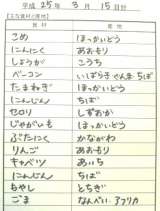 平成 25年 3月 15日分
【主な食材と産地】
食材 産地
こめ ほっかいどう
にんにく あおもり
しょうが こうち
ベーコン いばらき ぐんま ちば
たまねぎ ほっかいどう
にんじん ちば
セロリ しずおか
じゃがいも ほっかいどう
ぶたにく かながわ
りんご あおもり
キャベツ あいち
にんじん ちば
もやし とちぎ
ごま なんべい アフリカ